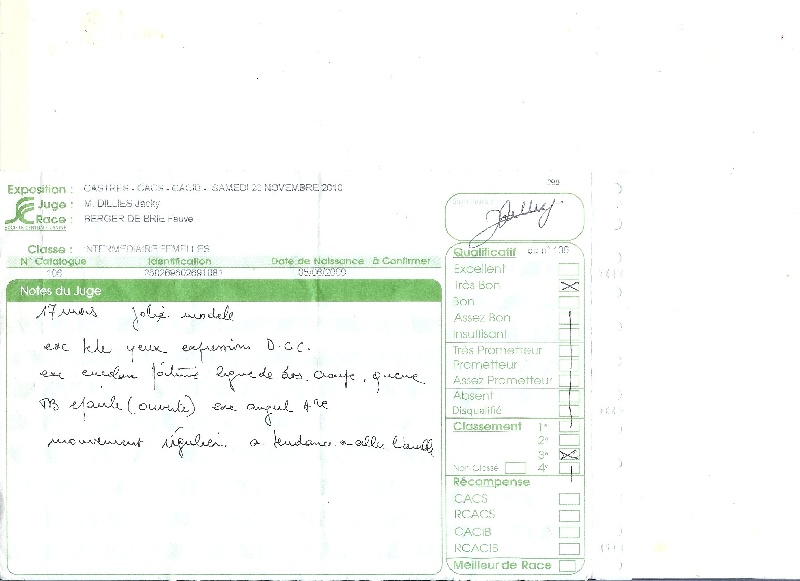 Exposition : CASTRES - CACS - CACIB - SAMEDI 20 NOVEMBRE 2010
Juge : M. DILLIES Jacky
Race : BERGER DE BRIE Fauve
Classe : INTERMEDIAIRE FEMELLES
N° Catalogue Identification Date de Naissance à Confirmer
106 250269602691081 05/06/2009
Notes du Juge
17 mois jolie modele
exc tete yeux expression
exc encolure poitrine ligne de dos, croupe, queue
TB epaule (ouverte) exc angul
mouvement régulier a tendance a
Qualificatif
Excellent
Très Bon
Bon
Assez Bon
Insuffisant
Très Prometteur
Prometteur
Assez Prometteur
Absent
Disqualifié
Classement 1°
2°
3°
Non Classé 4°
Récompense
CACS
RCACS
CACIB
RCACIB
Meilleur de Race